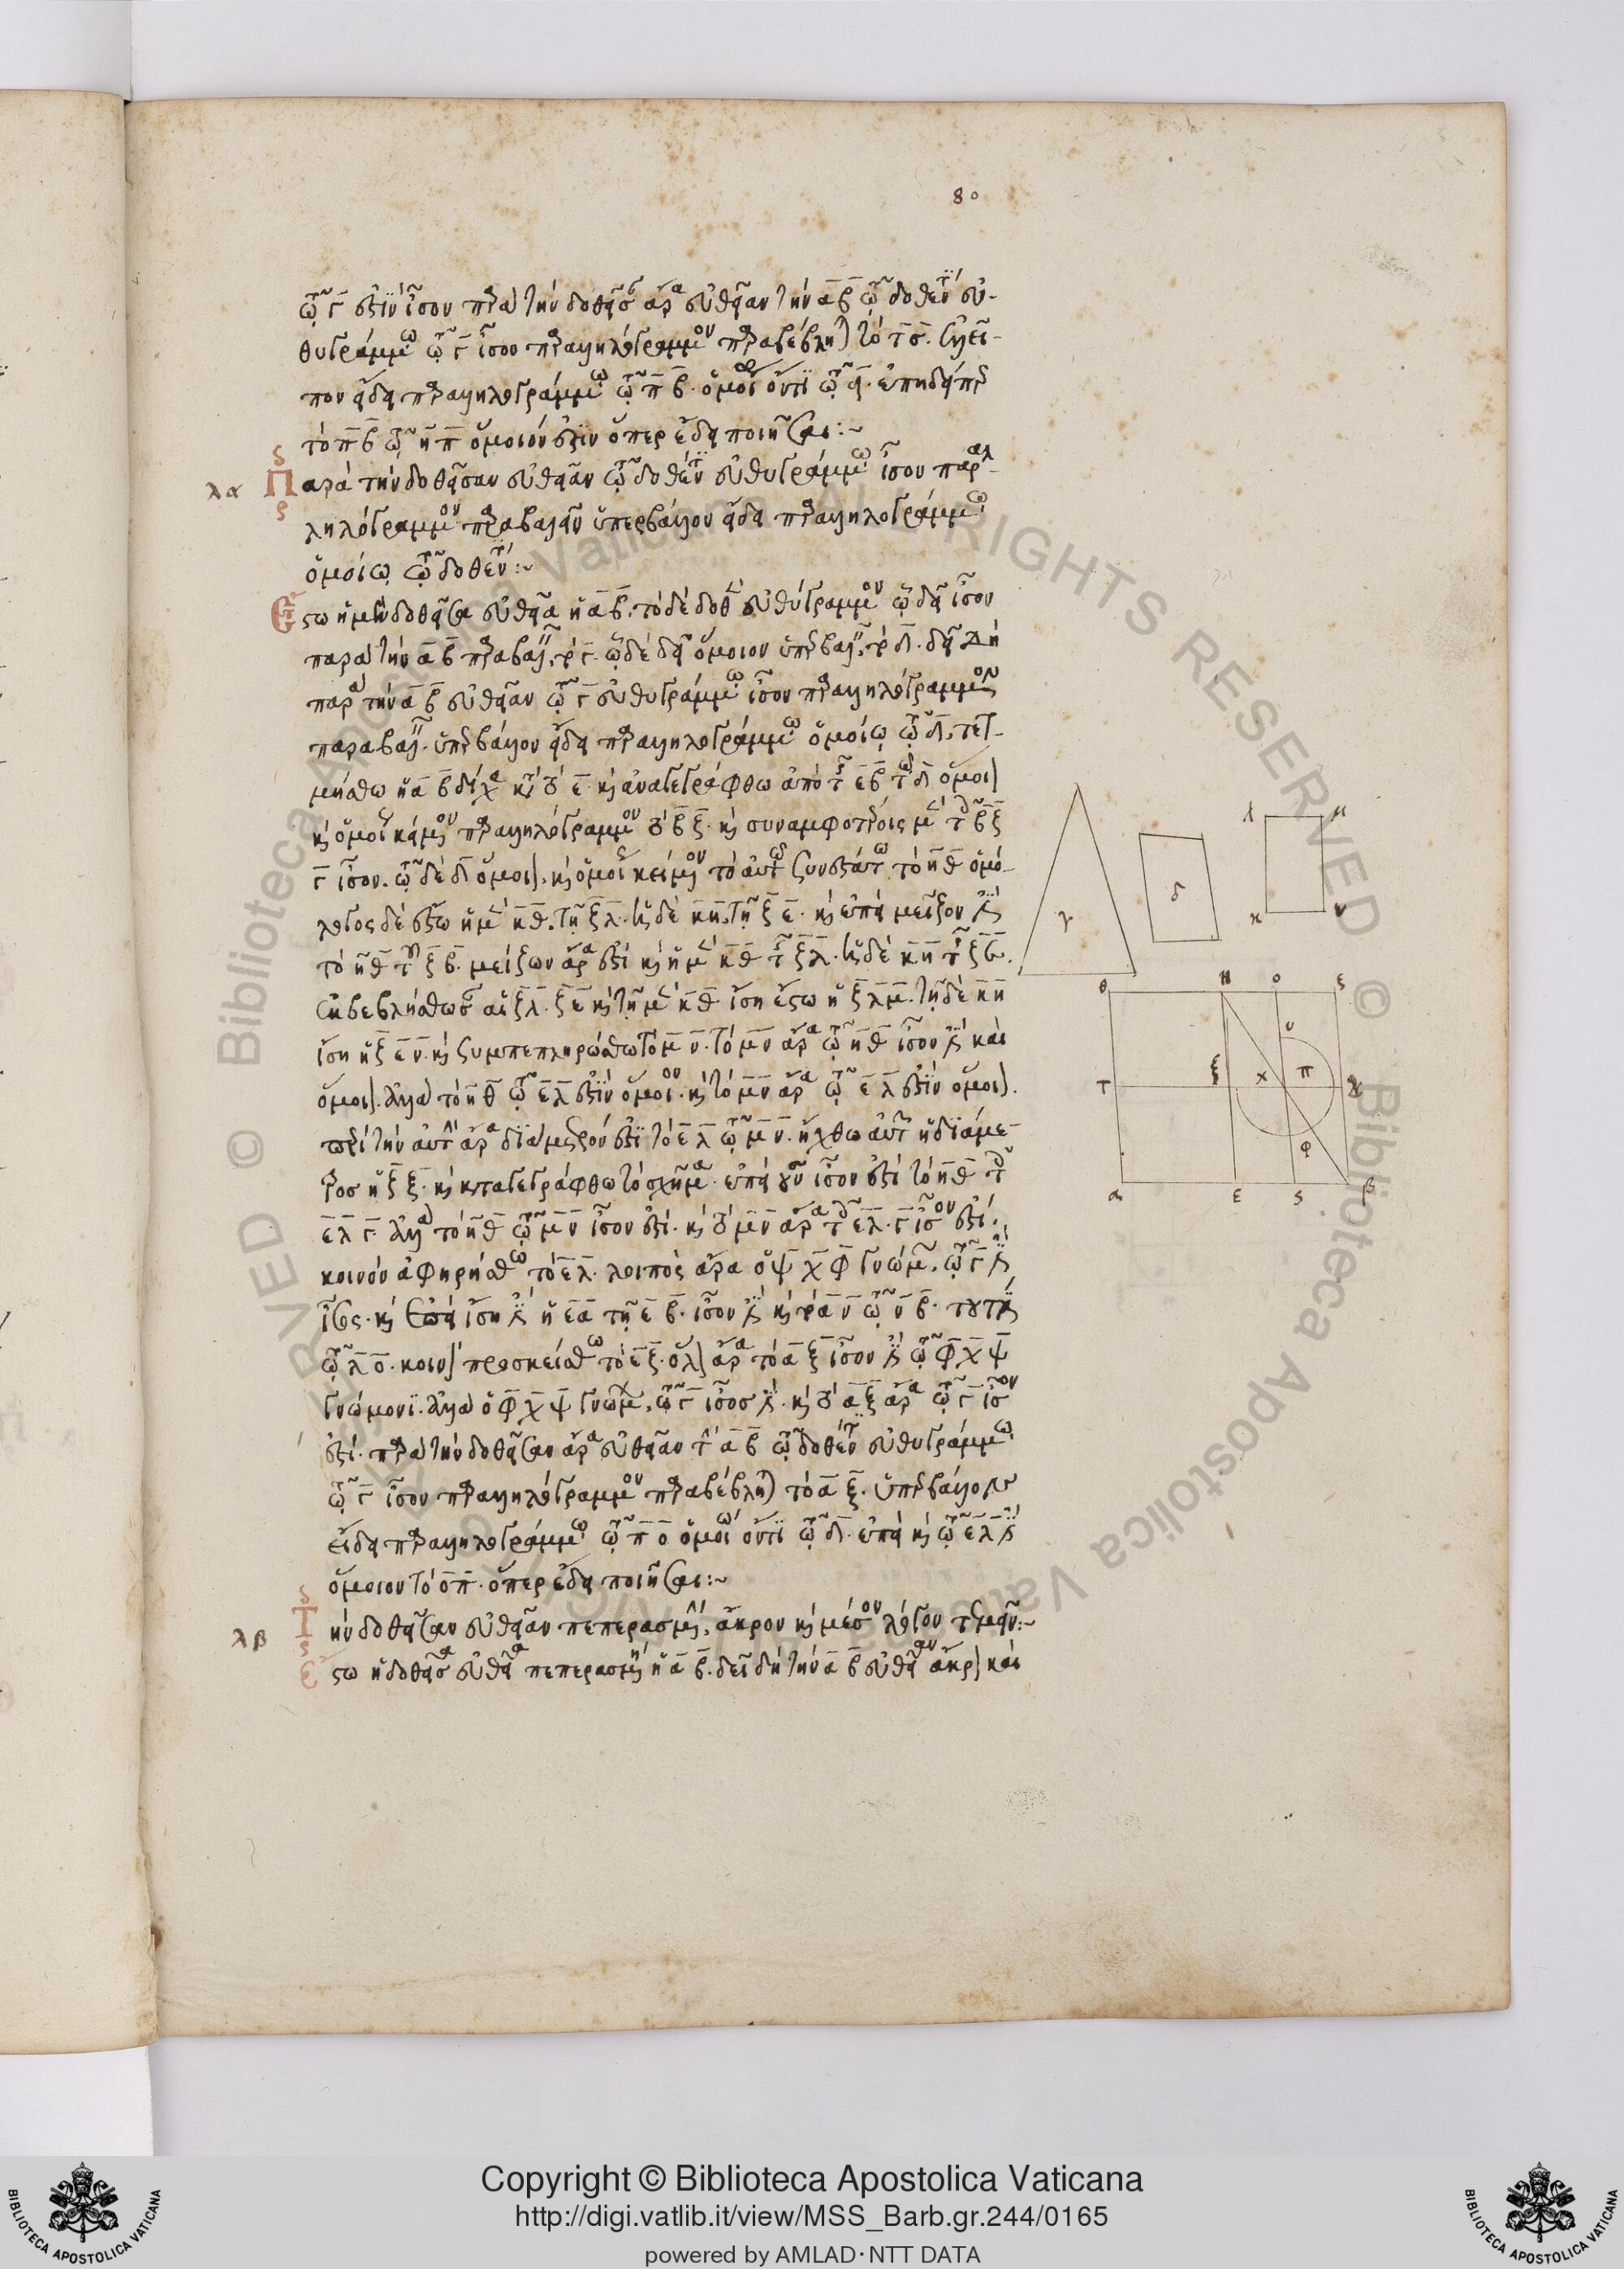 80
τῷ γ ἐστὶν ἴσον παρὰ τὴν δοθεῖσαν ἄρα εὐθεῖαν τὴν α β τῷ δοθέντι εὐ-
θυγράμμω τῷ γ ἴσον παραλληλόγραμμον παραβέβληται τὸ τ σ. ἐλλεῖ-
πον εἴδει παραλληλογράμμω τῷ π β. ὁμοίω ὄντι τῷ δ. ἐπειδήπερ
τὸ π β τῷ η π ὅμοιόν ἐστιν ὅπερ ἔδει ποιῆσαι:~
λα Παρὰ τὴν δοθεῖσαν εὐθεῖαν τῷ δοθέντι εὐθυγράμμω ἴσον παραλ-
ληλόγραμμον παραβαλεῖν ὑπερβάλλον εἴδει παραλληλογράμμω
ὁμοίω τῷ δοθέντι:~
Εστω ἡ μὲν δοθεῖσα εὐθεῖα ἡ α β. τὸ δὲ δοθὲν εὐθύγραμμον ᾧ δεῖ ἴσον
παρὰ τὴν α β παραβαλεῖν, τὸ γ. ᾧ δὲ δεῖ ὅμοιον ὑπερβαλεῖν, τὸ δ. δεῖ δὴ
παρὰ τὴν α β εὐθεῖαν τῷ γ εὐθυγράμμω ἴσον παραλληλόγραμμον
παραβαλεῖν. ὑπερβάλλον εἴδει παραλληλογράμμω ὁμοίω τῷ δ. τετ-
μήσθω ἡ α β δίχα κατὰ τὸ ε. καὶ ἀναγεγράφθω ἀπὸ τῆς ε β τῷ δ ὅμοιον
καὶ ὁμοίως κείμενον παραλληλόγραμμον τὸ β ξ. καὶ συναμφοτέροις μὲν τῷ β ξ
γ ἴσον. τῷ δὲ δ ὅμοιον, καὶ ὁμοίως κείμενον τὸ αὐτὸ συνεστάτω τὸ η θ ὁμό-
λογος δὲ ἔστω ἡ μὲν κ θ, τῇ ξ λ. ἡ δὲ κ η, τῇ ξ ε. καὶ ἐπεὶ μεῖζον ἐστὶ
τὸ η θ τοῦ ξ β. μείζων ἄρα ἐστὶ καὶ ἡ μὲν κ θ τῆς ξ λ. ἡ δὲ κ η τῆς ξ ε.
ἐκβεβλήσθωσαν αἱ ξ λ. ξ ε καὶ τῇ μὲν κ θ ἴση ἔστω ἡ ξ λ μ. τῇ δὲ κ η
ἴση ἡ ξ ε ν. καὶ συμπεπληρώσθω τὸ μ ν. τὸ μ ν ἄρα τῷ η θ ἴσον ἐστὶ καὶ
ὅμοιον. ἀλλὰ τὸ η θ τῷ ε λ ἐστὶν ὅμοιον. καὶ τὸ μ ν ἄρα τῷ ε λ ἐστὶν ὅμοιον.
περὶ τὴν αὐτὴν ἄρα διάμετρόν ἐστι τὸ ε λ τῷ μ ν. ἤχθω αὐτῶν ἡ διάμε-
τρος ἡ ξ ξ. καὶ καταγεγράφθω τὸ σχῆμα. ἐπεὶ οὖν ἴσον ἐστὶ τὸ η θ τοῖς
ε λ γ. ἀλλὰ τὸ η θ τῷ μ ν ἴσον ἐστί. καὶ τὸ μ ν ἄρα τοῖς ε λ. γ ἴσον ἐστί.
κοινὸν ἀφηρήσθω τὸ ε λ. λοιπὸς ἄρα ὁ ψ χ φ γνώμων, τῷ γ ἐστὶ
ἴσος. καὶ ἐπεὶ ἴση ἐστὶ ἡ ε α τῇ ε β. ἴσον ἐστὶ καὶ τὸ α ν τῷ ν β. τουτέστι
τῷ λ ο. κοινὸν προσκείσθω τὸ ε ξ. ὅλον ἄρα τὸ α ξ ἴσον ἐστὶ τῷ φ χ ψ
γνώμονι. ἀλλὰ ὁ φ χ ψ γνώμων, τῷ γ ἴσος ἐστί. καὶ τὸ α ξ ἄρα τῷ γ ἴσον
ἐστί. παρὰ τὴν δοθεῖσαν ἄρα εὐθεῖαν τὴν α β τῷ δοθέντι εὐθυγράμμω
τῷ γ ἴσον παραλληλόγραμμον παραβέβληται τὸ α ξ. ὑπερβάλλον
εἴδει παραλληλογράμμω τῷ π ο ὁμοίω ὄντι τῷ δ. ἐπεὶ καὶ τῷ ε λ ἐστὶ
ὅμοιον τὸ ο π. ὅπερ ἔδει ποιῆσαι:~
λβ Τὴν δοθεῖσαν εὐθεῖαν πεπερασμένην, ἄκρον καὶ μέσον λόγον τεμεῖν:~
Εστω ἡ δοθεῖσα εὐθεῖα πεπερασμένη ἡ α β. δεῖ δὴ τὴν α β εὐθεῖαν ἄκρον καὶ
γ
δ
λ μ
κ ν
θ η ο ξ
υ
τ ξ χ π
φ
α ε ς β
Copyright © Biblioteca Apostolica Vaticana
http://digi.vatlib.it/view/MSS_Barb.gr.244/0165
powered by AMLAD·NTT DATA
BIBLIOTECA APOSTOLICA VATICANA
BIBLIOTECA APOSTOLICA VATICANA